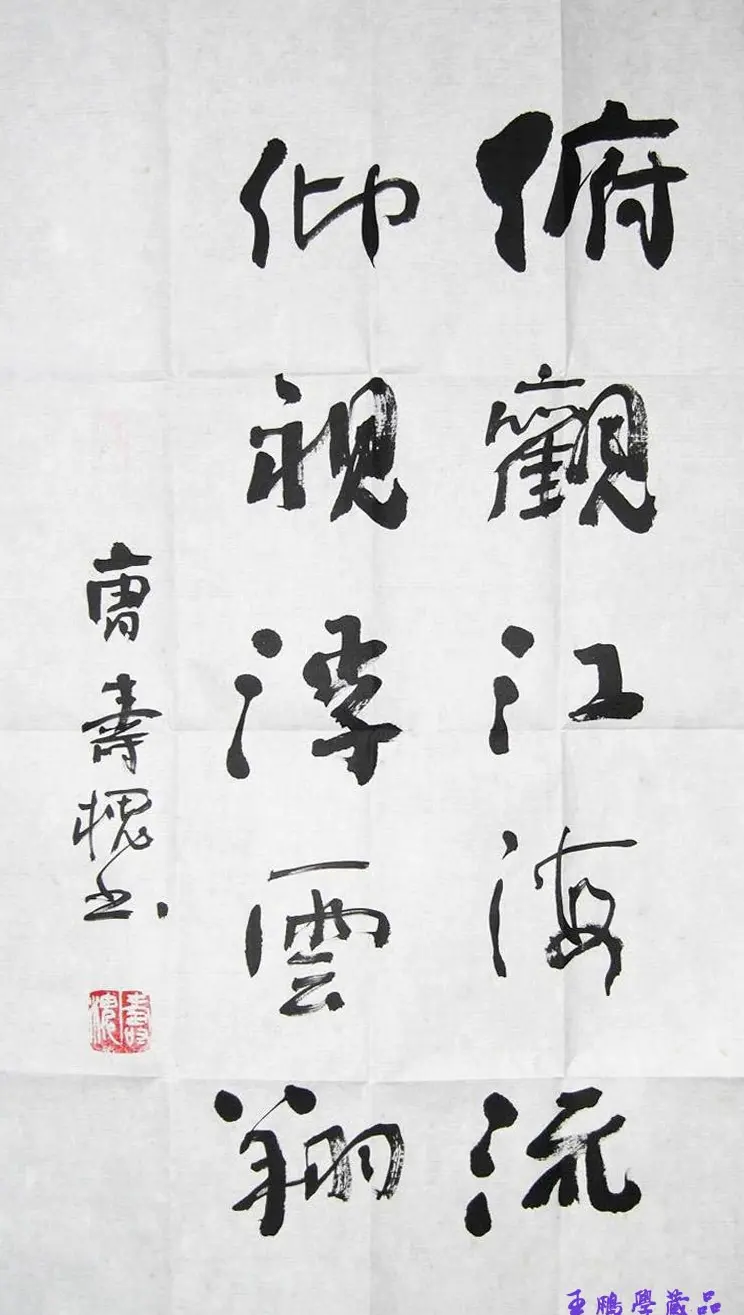 俯觀江海流
仰視浮雲翔
曹壽槐书
壽槐
王鵬學藏品